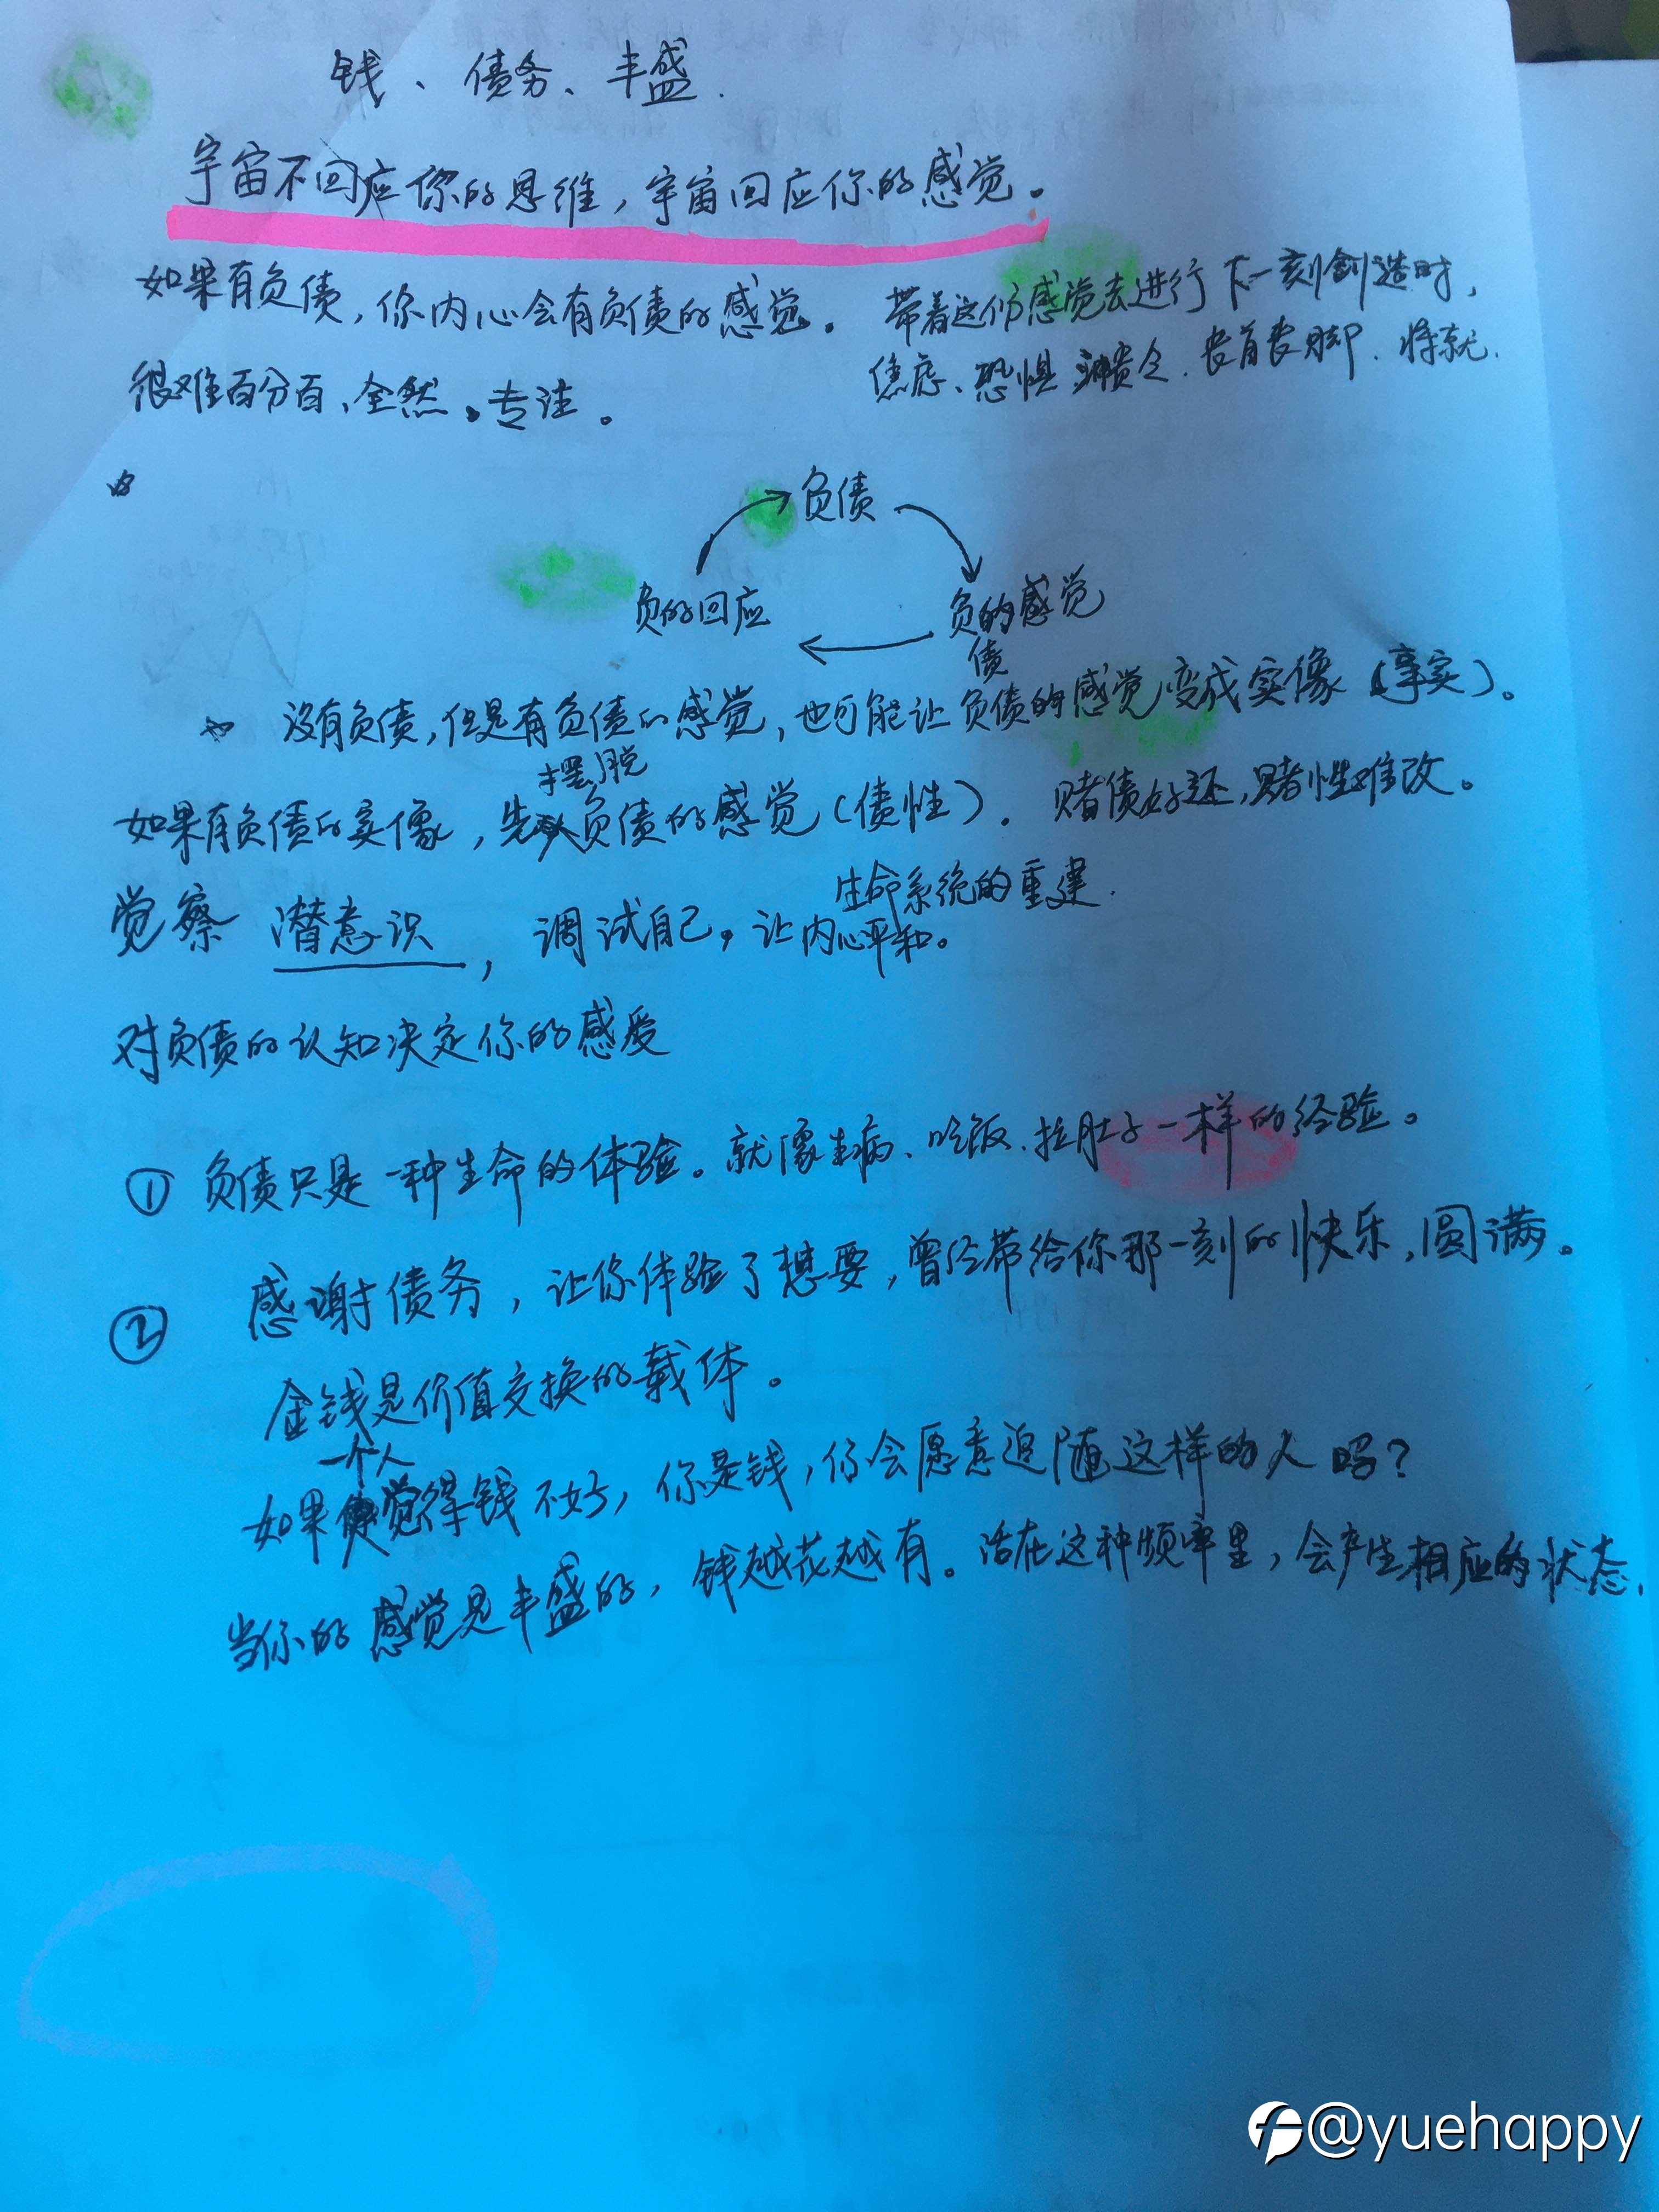 钱、债务、丰盛.
宇宙不回应你的思维，宇宙回应你的感觉。
如果有负债，你内心会有负债的感觉。 带着这份感觉去进行下一刻创造时，
很难百分百、全然。专注。 焦虑、恐惧 畏首畏脚、将就.
负债
负的回应 负的感觉
债
没有负债，但是有负债的感觉，也可能让负债的感觉变成实像（事实）。
摆脱
如果有负债的实像，先负债的感觉（债性）. 赌债好还，赌性难改。
生命系统的重建.
觉察 潜意识 ，调试自己，让内心平和。
对负债的认知决定你的感受
① 负债只是一种生命的体验。就像生病、吃饭、拉肚子一样的经验。
② 感谢债务，让你体验了想要，曾经带给你那一刻的快乐，圆满。
金钱是价值交换的载体。
一个人
如果觉得钱不好，你是钱，你会愿意追随这样的人吗？
当你的感觉是丰盛的，钱越花越有。活在这种频率里，会产生相应的状态.
@yuehappy